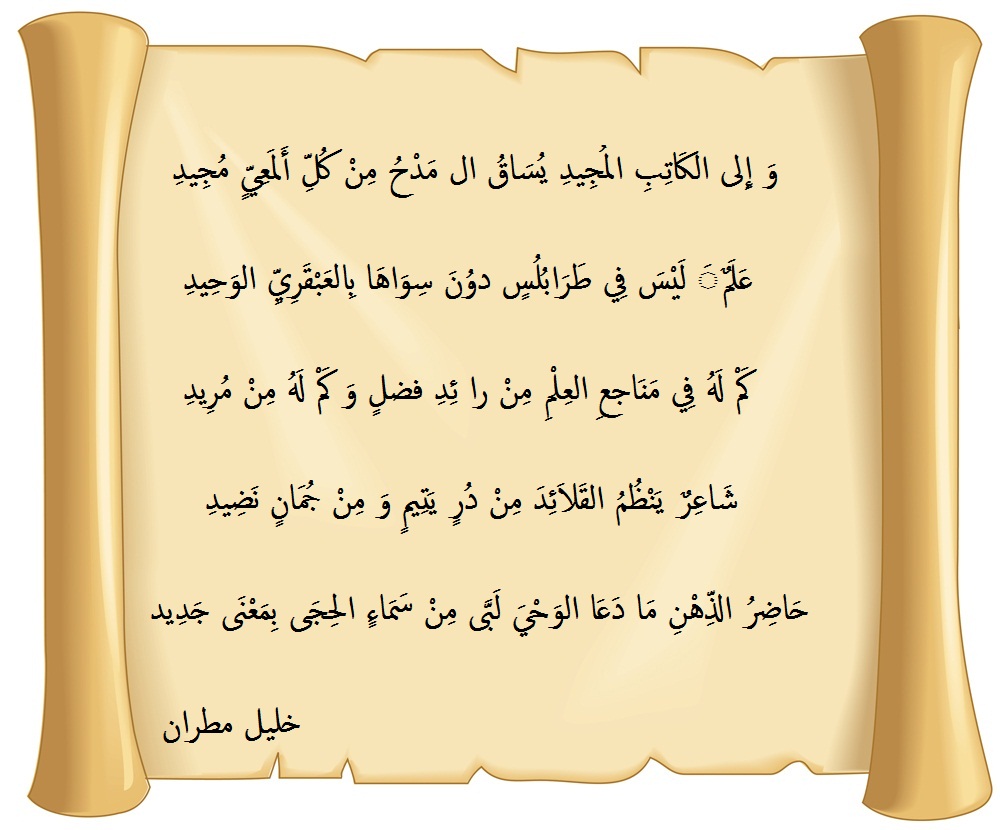 وَ إِلى الكَاتِبِ المُجِيدِ يُسَاقُ ال مَدْحُ مِنْ كُلِّ أَلمَعِيٍّ مُجِيدِ
عَلَمٌ◌َ لَيْسَ فِي طَرَابُلُسٍ دوُنَ سِوَاهَا بِالعَبْقَرِيِّ الوَحِيدِ
كَمْ لَهُ فِي مَنَاجعِ العِلْمِ مِنْ را ئِدِ فضلٍ وَ كَمْ لَهُ مِنْ مُرِيدِ
شَاعِرٌ يَنْظُمُ القَلاَئِدَ مِنْ دُرٍ يَتِيمٍ وَ مِنْ جُمَانٍ نَضِيدِ
حَاضِرُ الذِّهْنِ مَا دَعَا الوَحْيَ لَبَّى مِنْ سَمَاءٍ الحِجَى بِمَعْنَى جَدِيد
خليل مطران